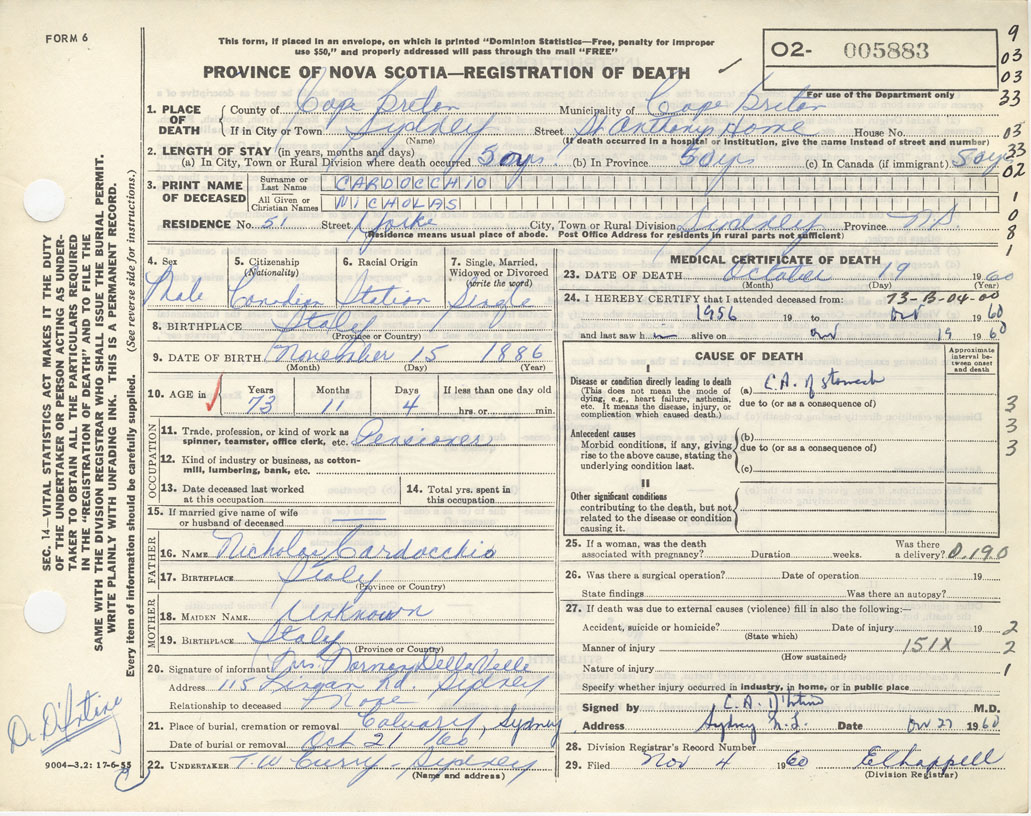 FORM 6
This form, if placed in an envelope, on which is printed "Dominion Statistics—Free, penalty for improper
use $50," and properly addressed will pass through the mail "FREE"
PROVINCE OF NOVA SCOTIA—REGISTRATION OF DEATH
02- 005883
For use of the Department only
9
03
03
33
03
33
02
1
0
8
1
1. PLACE OF DEATH County of Cape Breton Municipality of Cape Breton
If in City or Town Sydney Street St Anthony Home House No.
(Name) (If death occurred in a hospital or institution, give the name instead of street and number)
2. LENGTH OF STAY (in years, months and days)
(a) In City, Town or Rural Division where death occurred 50 yrs. (b) In Province 50 yrs (c) In Canada (if immigrant) 50 yrs
3. PRINT NAME OF DECEASED Surname or Last Name CARDOCCHIO
All Given or Christian Names NICHOLAS
RESIDENCE No. 51 Street Yorke City, Town or Rural Division Sydney Province N.S.
(Residence means usual place of abode. Post Office Address for residents in rural parts not sufficient)
4. Sex Male
5. Citizenship (Nationality) Canadian
6. Racial Origin Italian
7. Single, Married, Widowed or Divorced (write the word) Single
8. BIRTHPLACE Italy
(Province or Country)
9. DATE OF BIRTH November 15 1886
(Month) (Day) (Year)
10. AGE in Years 73 Months 11 Days 4 If less than one day old hrs. or min.
OCCUPATION
11. Trade, profession, or kind of work as spinner, teamster, office clerk, etc. Pensioner
12. Kind of industry or business, as cotton-mill, lumbering, bank, etc.
13. Date deceased last worked at this occupation
14. Total yrs. spent in this occupation
15. If married give name of wife or husband of deceased
FATHER
16. NAME Nicholas Cardocchio
17. BIRTHPLACE Italy
(Province or Country)
MOTHER
18. MAIDEN NAME Unknown
19. BIRTHPLACE Italy
(Province or Country)
20. Signature of informant Mrs. Norman DellaValle
Address 115 Lingan Rd. Sydney
Relationship to deceased None
21. Place of burial, cremation or removal Calvary, Sydney
Date of burial or removal Oct 21 /60
22. UNDERTAKER T.W Curry - Sydney
(Name and address)
MEDICAL CERTIFICATE OF DEATH
23. DATE OF DEATH October 19 1960
(Month) (Day) (Year)
24. I HEREBY CERTIFY that I attended deceased from: 73-B-04-00
1956 19 to Oct 1960
and last saw h im alive on Oct 19 1960
CAUSE OF DEATH
Approximate interval between onset and death
I
Disease or condition directly leading to death (a) C.A. of stomach
(This does not mean the mode of dying, e.g., heart failure, asthenia, etc. It means the disease, injury, or complication which caused death.)
due to (or as a consequence of)
Antecedent causes (b)
Morbid conditions, if any, giving rise to the above cause, stating the underlying condition last.
due to (or as a consequence of)
(c)
II
Other significant conditions
contributing to the death, but not related to the disease or condition causing it.
3
3
3
25. If a woman, was the death associated with pregnancy? Duration weeks. Was there a delivery? 0.190
26. Was there a surgical operation? Date of operation 19
State findings Was there an autopsy?
27. If death was due to external causes (violence) fill in also the following:—
Accident, suicide or homicide? Date of injury 19 2
(State which)
Manner of injury 151X 2
(How sustained)
Nature of injury 1
Specify whether injury occurred in industry, in home, or in public place
Signed by C.A. D'Intino M.D.
Address Sydney N.S. Date Oct 27 1960
28. Division Registrar's Record Number
29. Filed Nov 4 1960 E Chappell
(Division Registrar)
SEC. 14—VITAL STATISTICS ACT MAKES IT THE DUTY
OF THE UNDERTAKER OR PERSON ACTING AS UNDER-
TAKER TO OBTAIN ALL THE PARTICULARS REQUIRED
IN THE "REGISTRATION OF DEATH" AND TO FILE THE
SAME WITH THE DIVISION REGISTRAR WHO SHALL ISSUE THE BURIAL PERMIT.
WRITE PLAINLY WITH UNFADING INK. THIS IS A PERMANENT RECORD.
Every item of information should be carefully supplied. (See reverse side for instructions.)
Dr. D'Intino
9004—3.2: 17-6-55